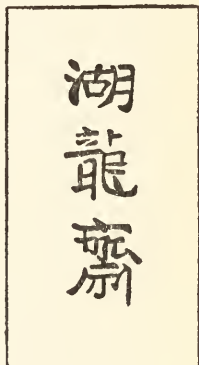 湖龍齋